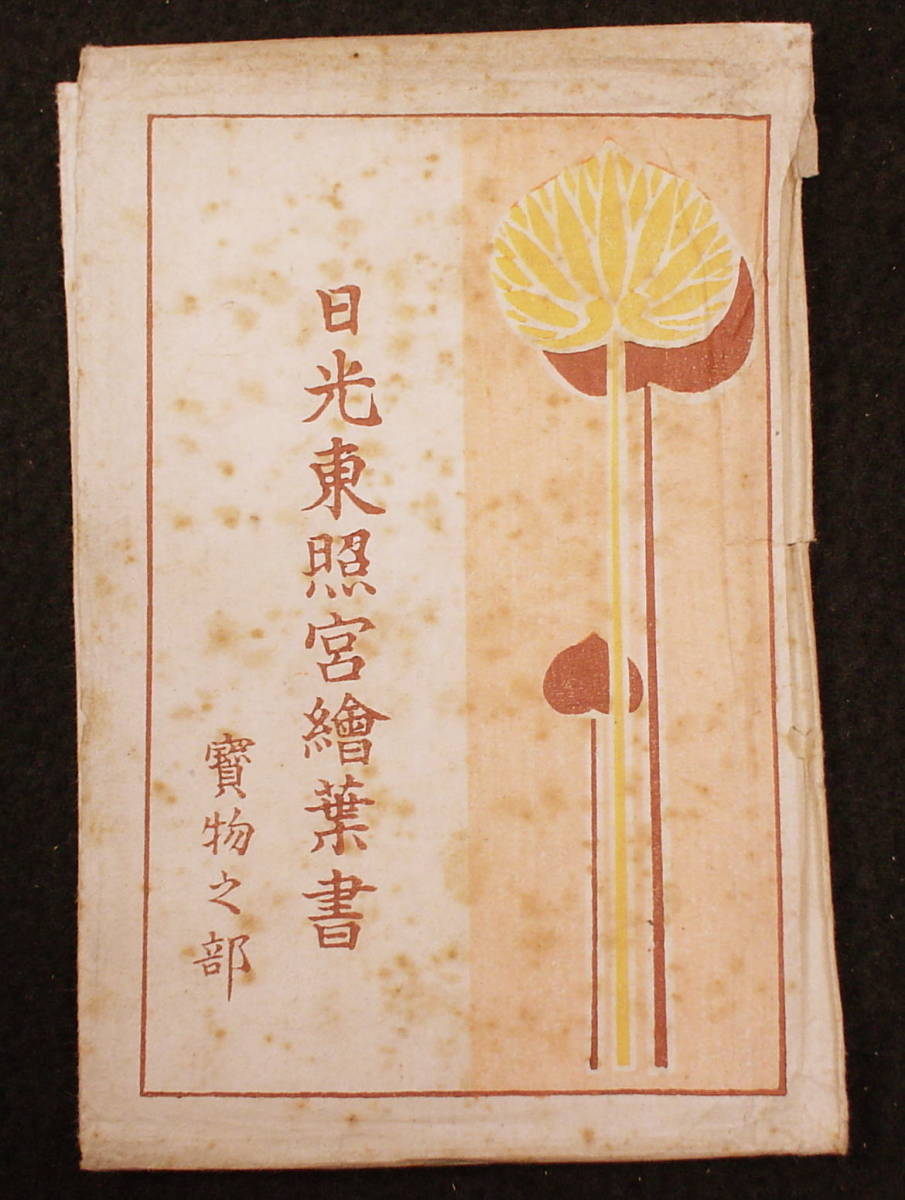 日光東照宮繪葉書
寶物之部